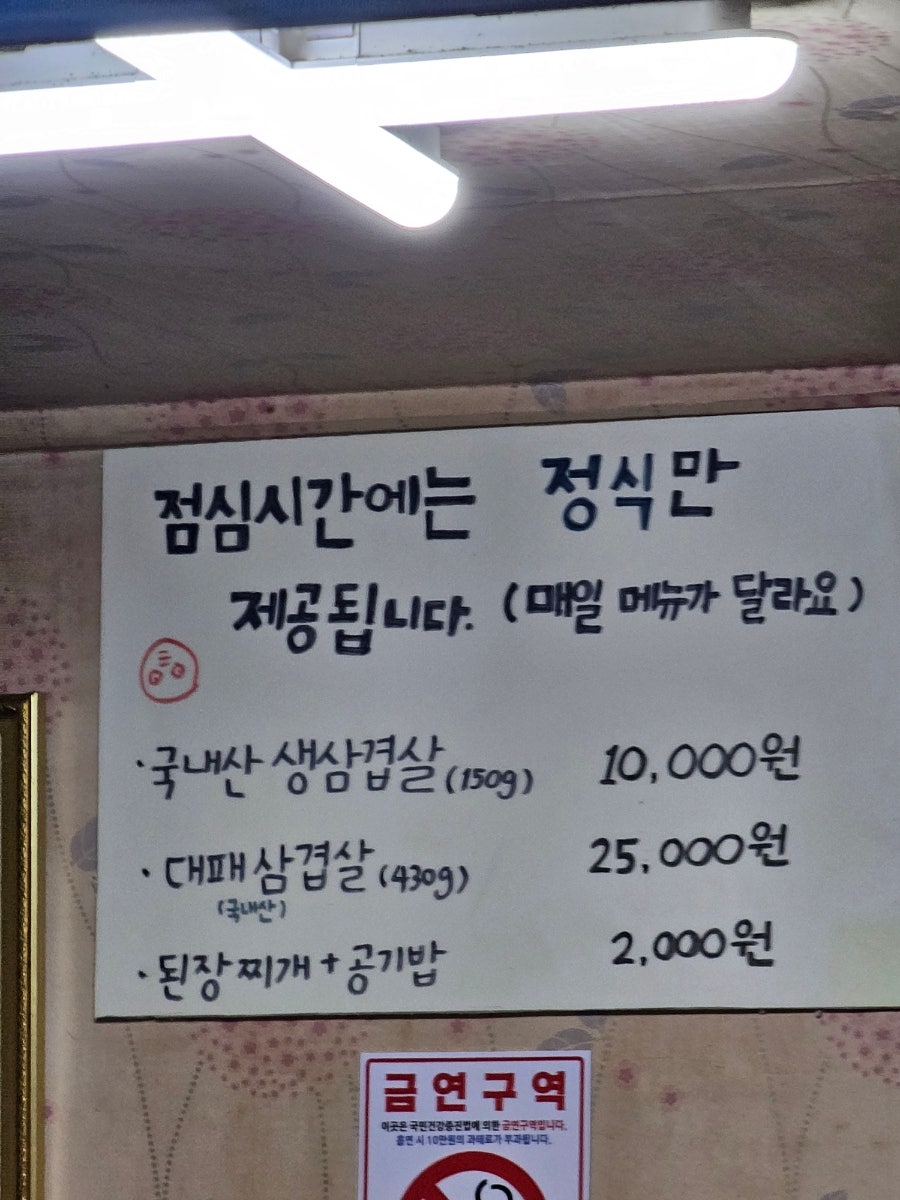 점심시간에는 정식만
제공됩니다. (매일 메뉴가 달라요)
·국내산 생삼겹살(150g) 10,000원
·대패삼겹살(430g) 25,000원
(국내산)
·된장찌개+공기밥 2,000원
금연구역
이곳은 국민건강증진법에 의한 금연구역입니다.
흡연 시 10만원의 과태료가 부과됩니다.